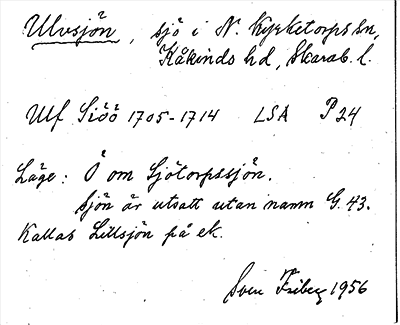 Ulvsjön, sjö i N. Kyrketorps sn,
Kåkinds hd, Skarab. l.
Ulf Siöö 1705-1714 LSA P 24
Läge: Ö om Sjötorpssjön.
Sjön är utsatt utan namn G. 43.
Kallas Lillsjön på ek.
Sven Friberg 1956